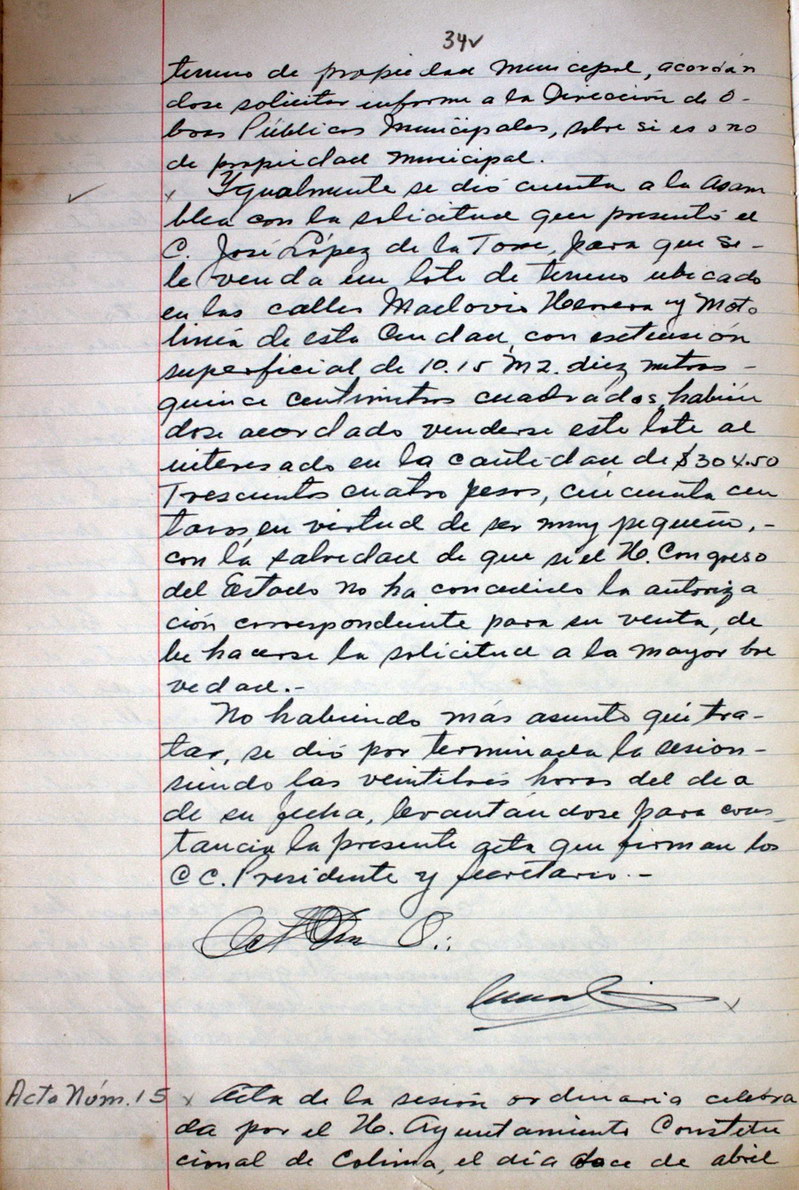 34v
terreno de propiedad municipal, acordán
dose solicitar informe a la Dirección de O-
bras Públicas Municipales, sobre si es o no
de propiedad municipal.
Ygualmente se dió cuenta a la Asam
blea con la solicitud que presentó el
C. José López de la Torre, para que se-
le venda un lote de terreno ubicado
en las calles Maclovio Herrera y Moto
linía de esta Ciudad, con extensión
superficial de 10.15 M2. diez metros-
quince centímetros cuadrados, habién
dose acordado venderse este lote al
interesado en la cantidad de $304.50
Trescientos cuatro pesos, cincuenta cen
tavos, en virtud de ser muy pequeño,-
con la salvedad de que si el H. Congreso
del Estado no ha concedido la autoriza
ción correspondiente para su venta, de
be hacerse la solicitud a la mayor bre
vedad.-
No habiendo más asunto qué tra-
tar, se dió por terminada la sesión-
siendo las veintitrés horas del dia
de su fecha, levantándose para cons_
tancia la presente acta que firman los
C C. Presidente y Secretario.-
Acta Núm. 15 Acta de la sesión ordinaria celebra
da por el H. Ayuntamiento Constitu
cional de Colima, el día doce de abril